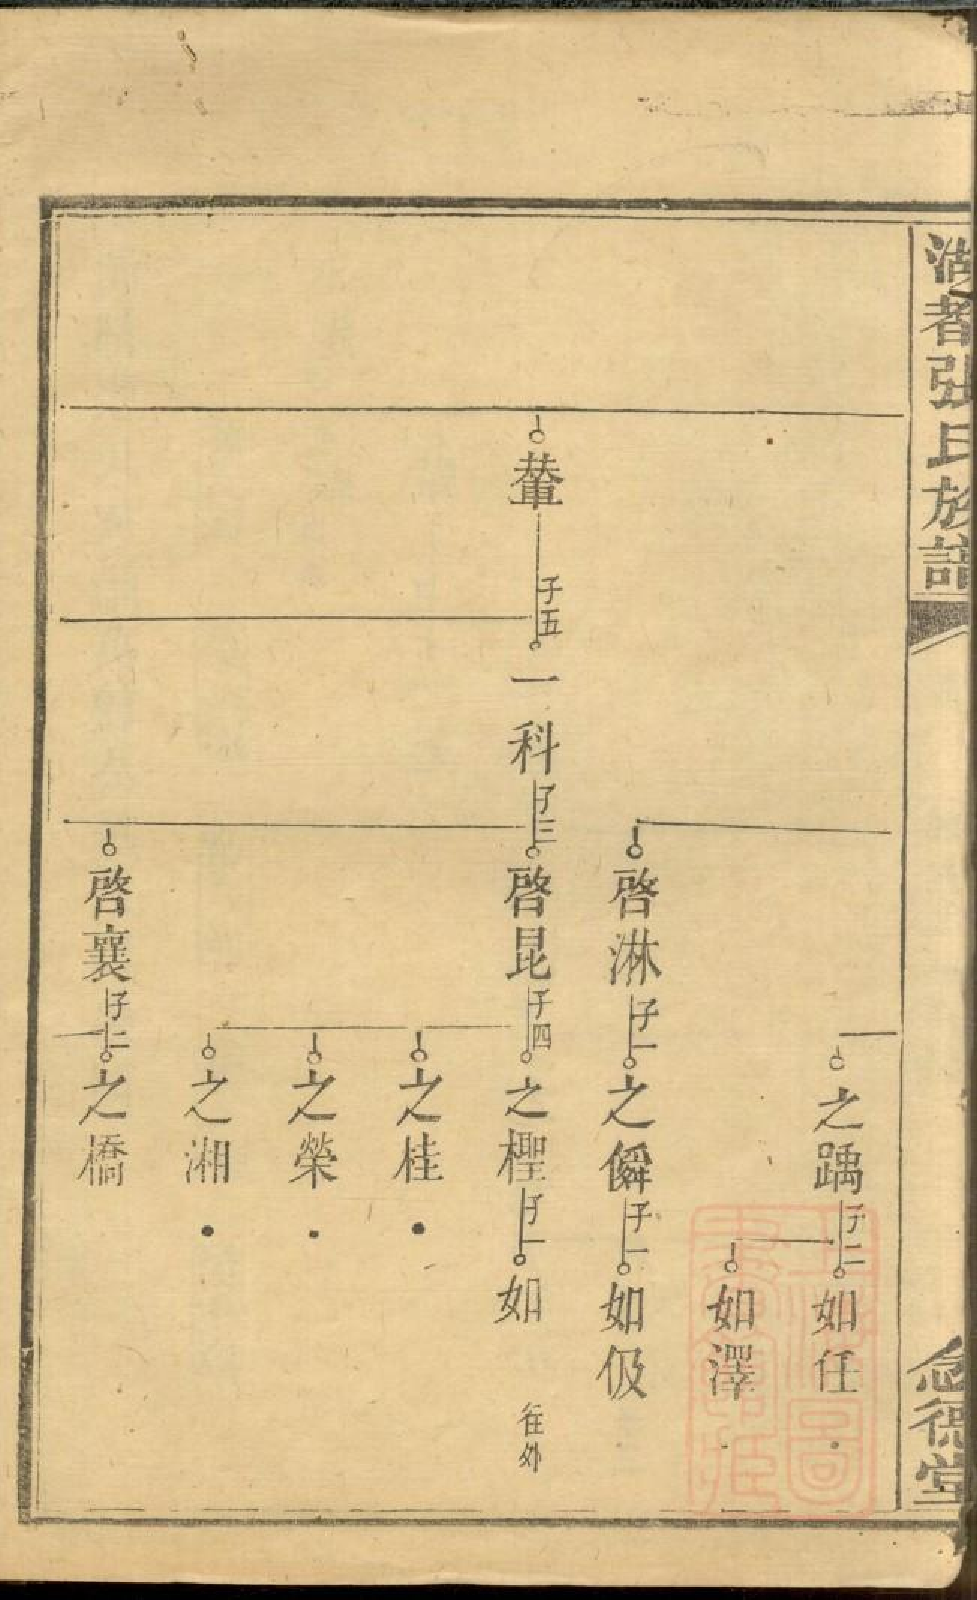 湖耆張氏族譜
念德堂
之踽
子二
如任
如澤
啓淋
子一
之僢
子一
如伋
輦
子五
一科
子三
啓昆
子四
之檉
子一
如
往外
之桂
之榮
之湘
啓襄
子二
之橋